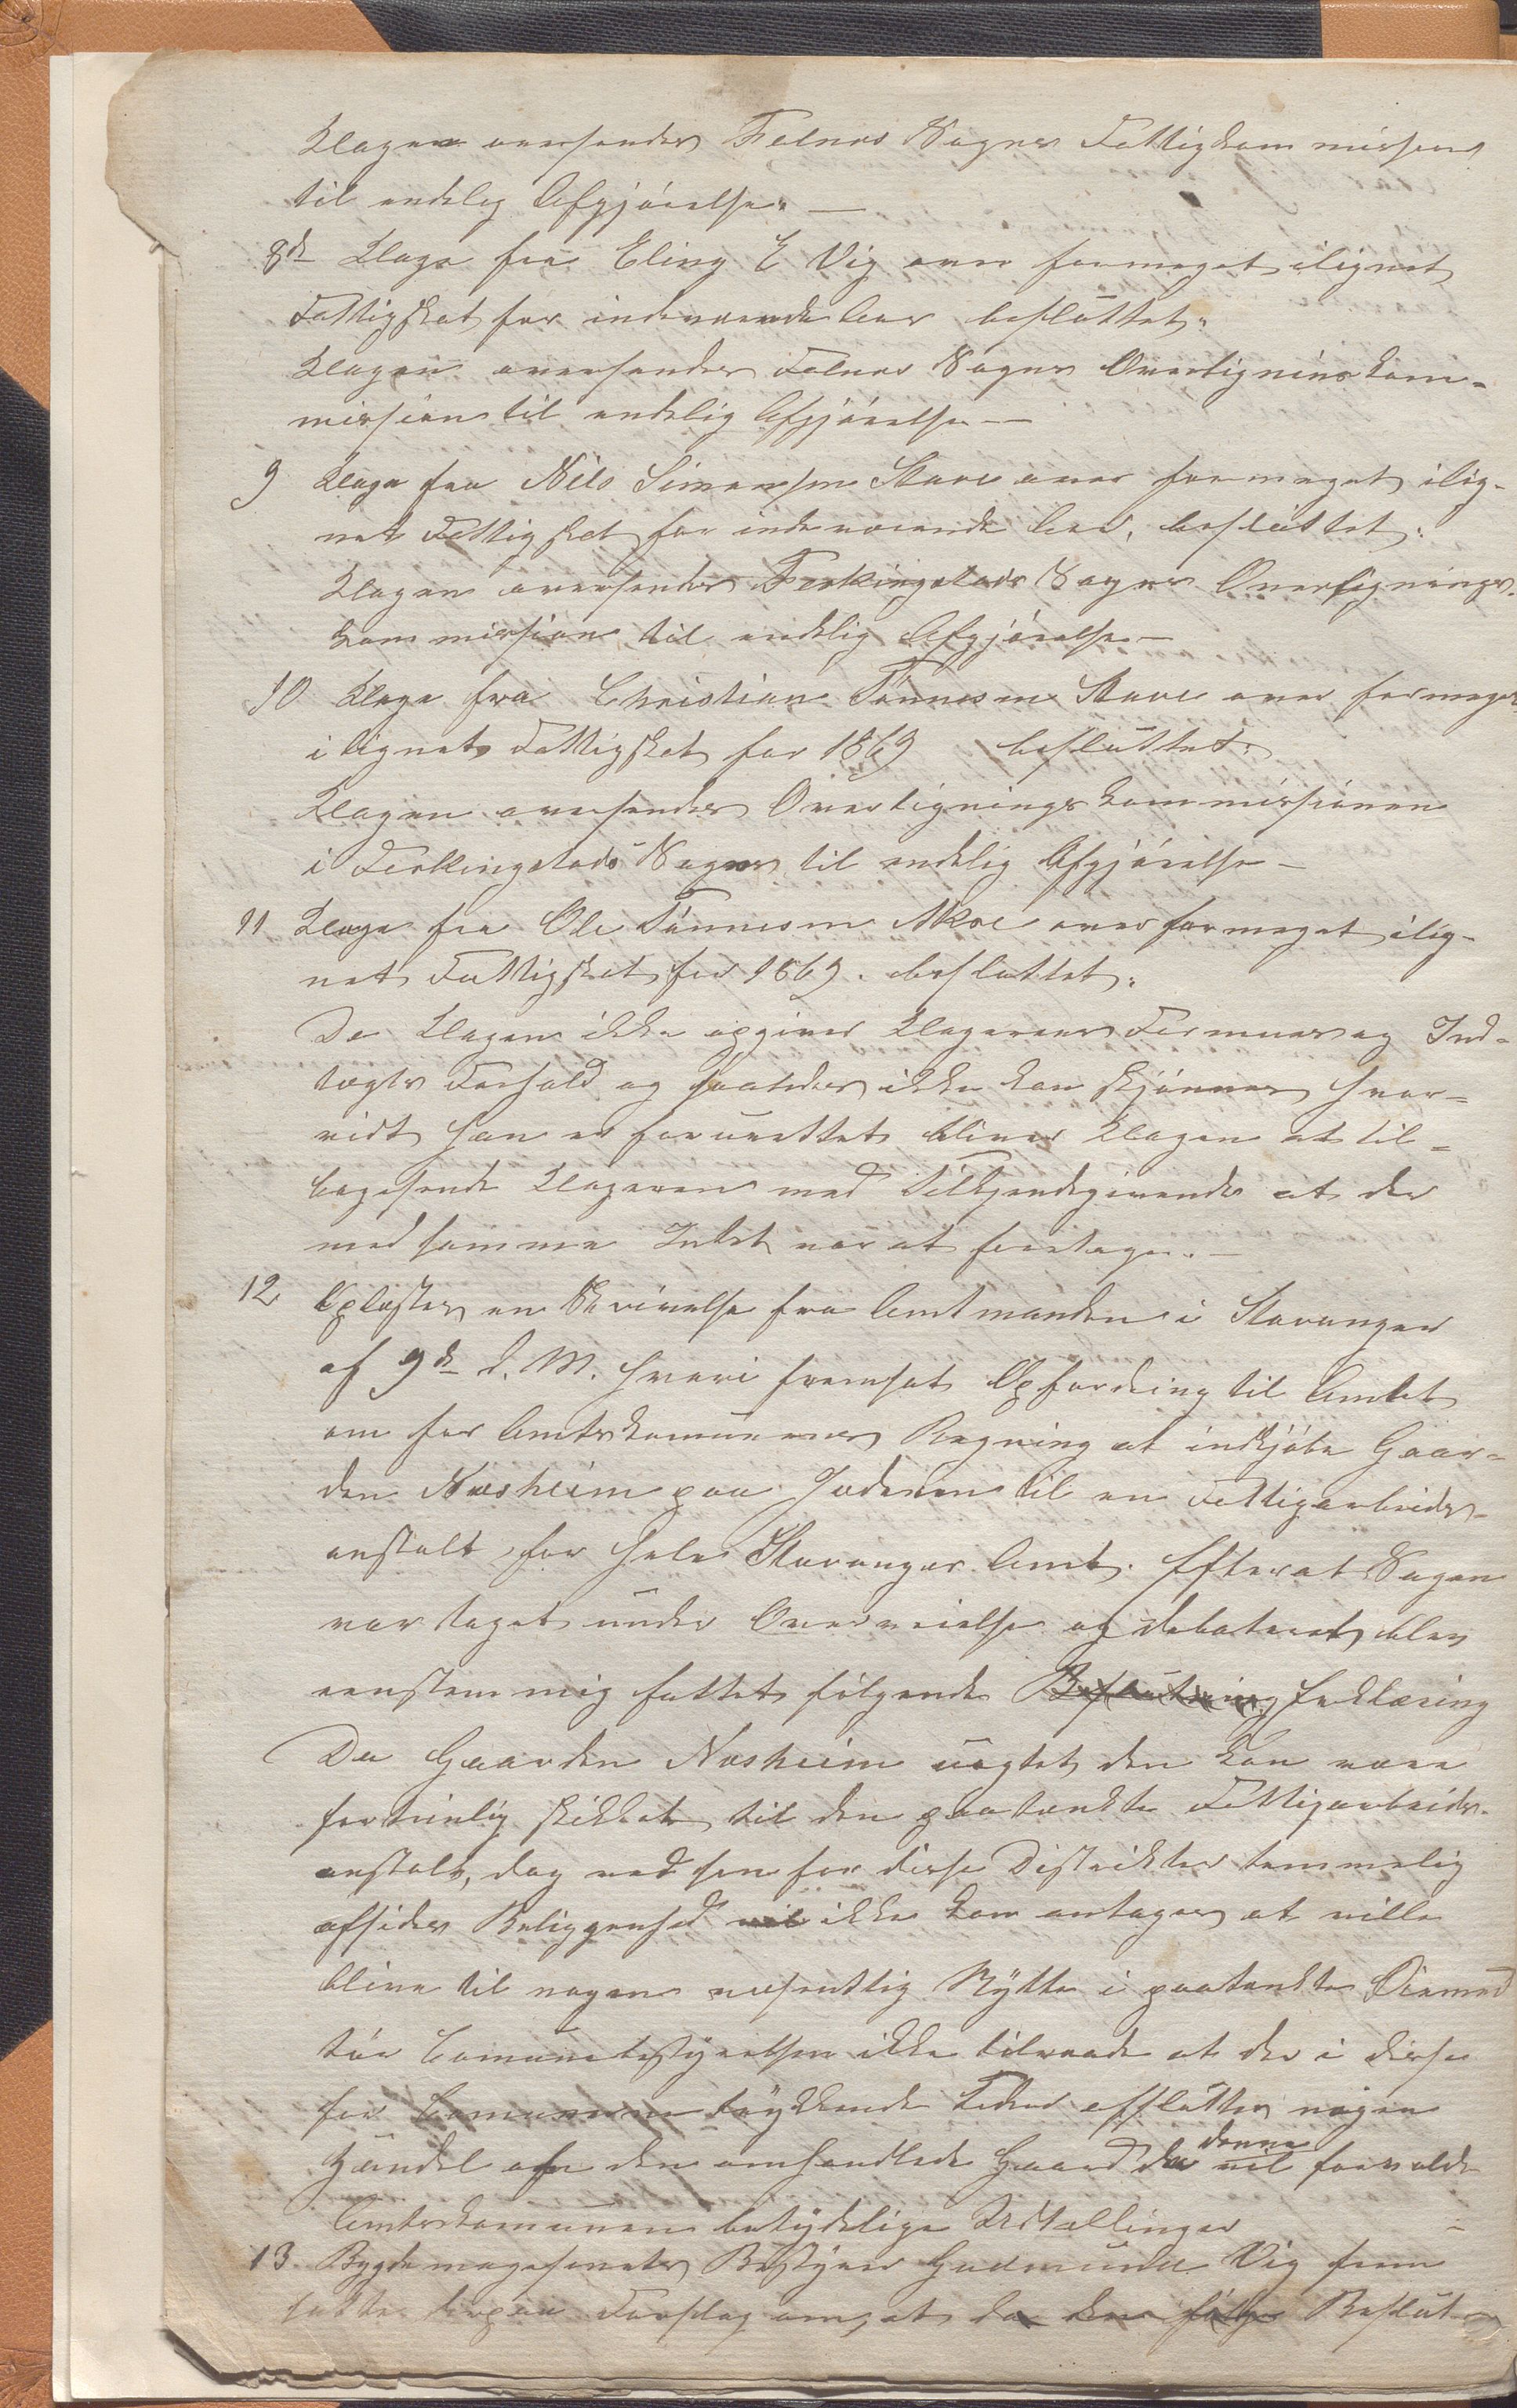 Klagen oversendes Falnes Sogns Fattigkommission
til endelig Afgjørelse. —
8de Klage fra Eling E Vig over formeget ilignet
Fattigskat for indeværende Aar besluttet:
Klagen oversendes Falnes Sogns Overligninskom-
mission til endelig Afgjørelse —
9 Klage fra Nils Simonsen Stave over formeget ilig-
net Fattigskat for indeværende Aar, besluttet:
Klagen oversendes Ferkingstads Sogns Overlignings-
kommission til endelig Afgjørelse —
10 Klage fra Christian Tønnesen Stave over formeget
ilignet Fattigskat for 1869 besluttet:
Klagen oversendes Overligningskommissionen
i Ferkingstads Sogn til endelig Afgjørelse —
11 Klage fra Ole Tønnesen Akre over formeget ilig-
net Fattigskat for 1869. besluttet:
Da Klagen ikke opgiver Klagerens Formues og Ind-
tægts Forhold og saaledes ikke kan skjønnes hvor-
vidt han er forurettet bliver Klagen at til-
bagesende Klageren med Tilkjendegivende at der
med samme Intet var at foretage. —
12 Oplæstes en Skrivelse fra Amtmanden i Stavanger
af 9de d. M. hvori fremsat Opfordring til Amtet
om for Amtskommunens Regning at indkjøbe Gaar-
den Næsheim paa Jæderen til en Fattigarbeids-
anstalt for hele Stavanger Amt. Efterat Sagen
var taget under Overveielse og debateret blev
eenstemmig fattet følgende Beslutning Erklæring
Da Gaarden Næsheim uagtet den kan være
fortrinlig skikket til den paatænkte Fattigarbeids-
anstalt, dog ved sin for disse Distrikter temmelig
afsides Beliggenhed vil ikke kan antages at ville
blive til nogen væsentlig Nytte i paatænkte Øiemed
tør Comunebestyrelsen ikke tilraade at der i disse
for Comunerne trykkende Tider afsluttes nogen
Handel om den omhandlede Gaard da denne vil forvolde
Amtskomunen betydelige Udtællinger —
13. Bygdemagasinets Bestyrer Gudmund Vig frem
satte Forslag om, at da den følge Beslut-